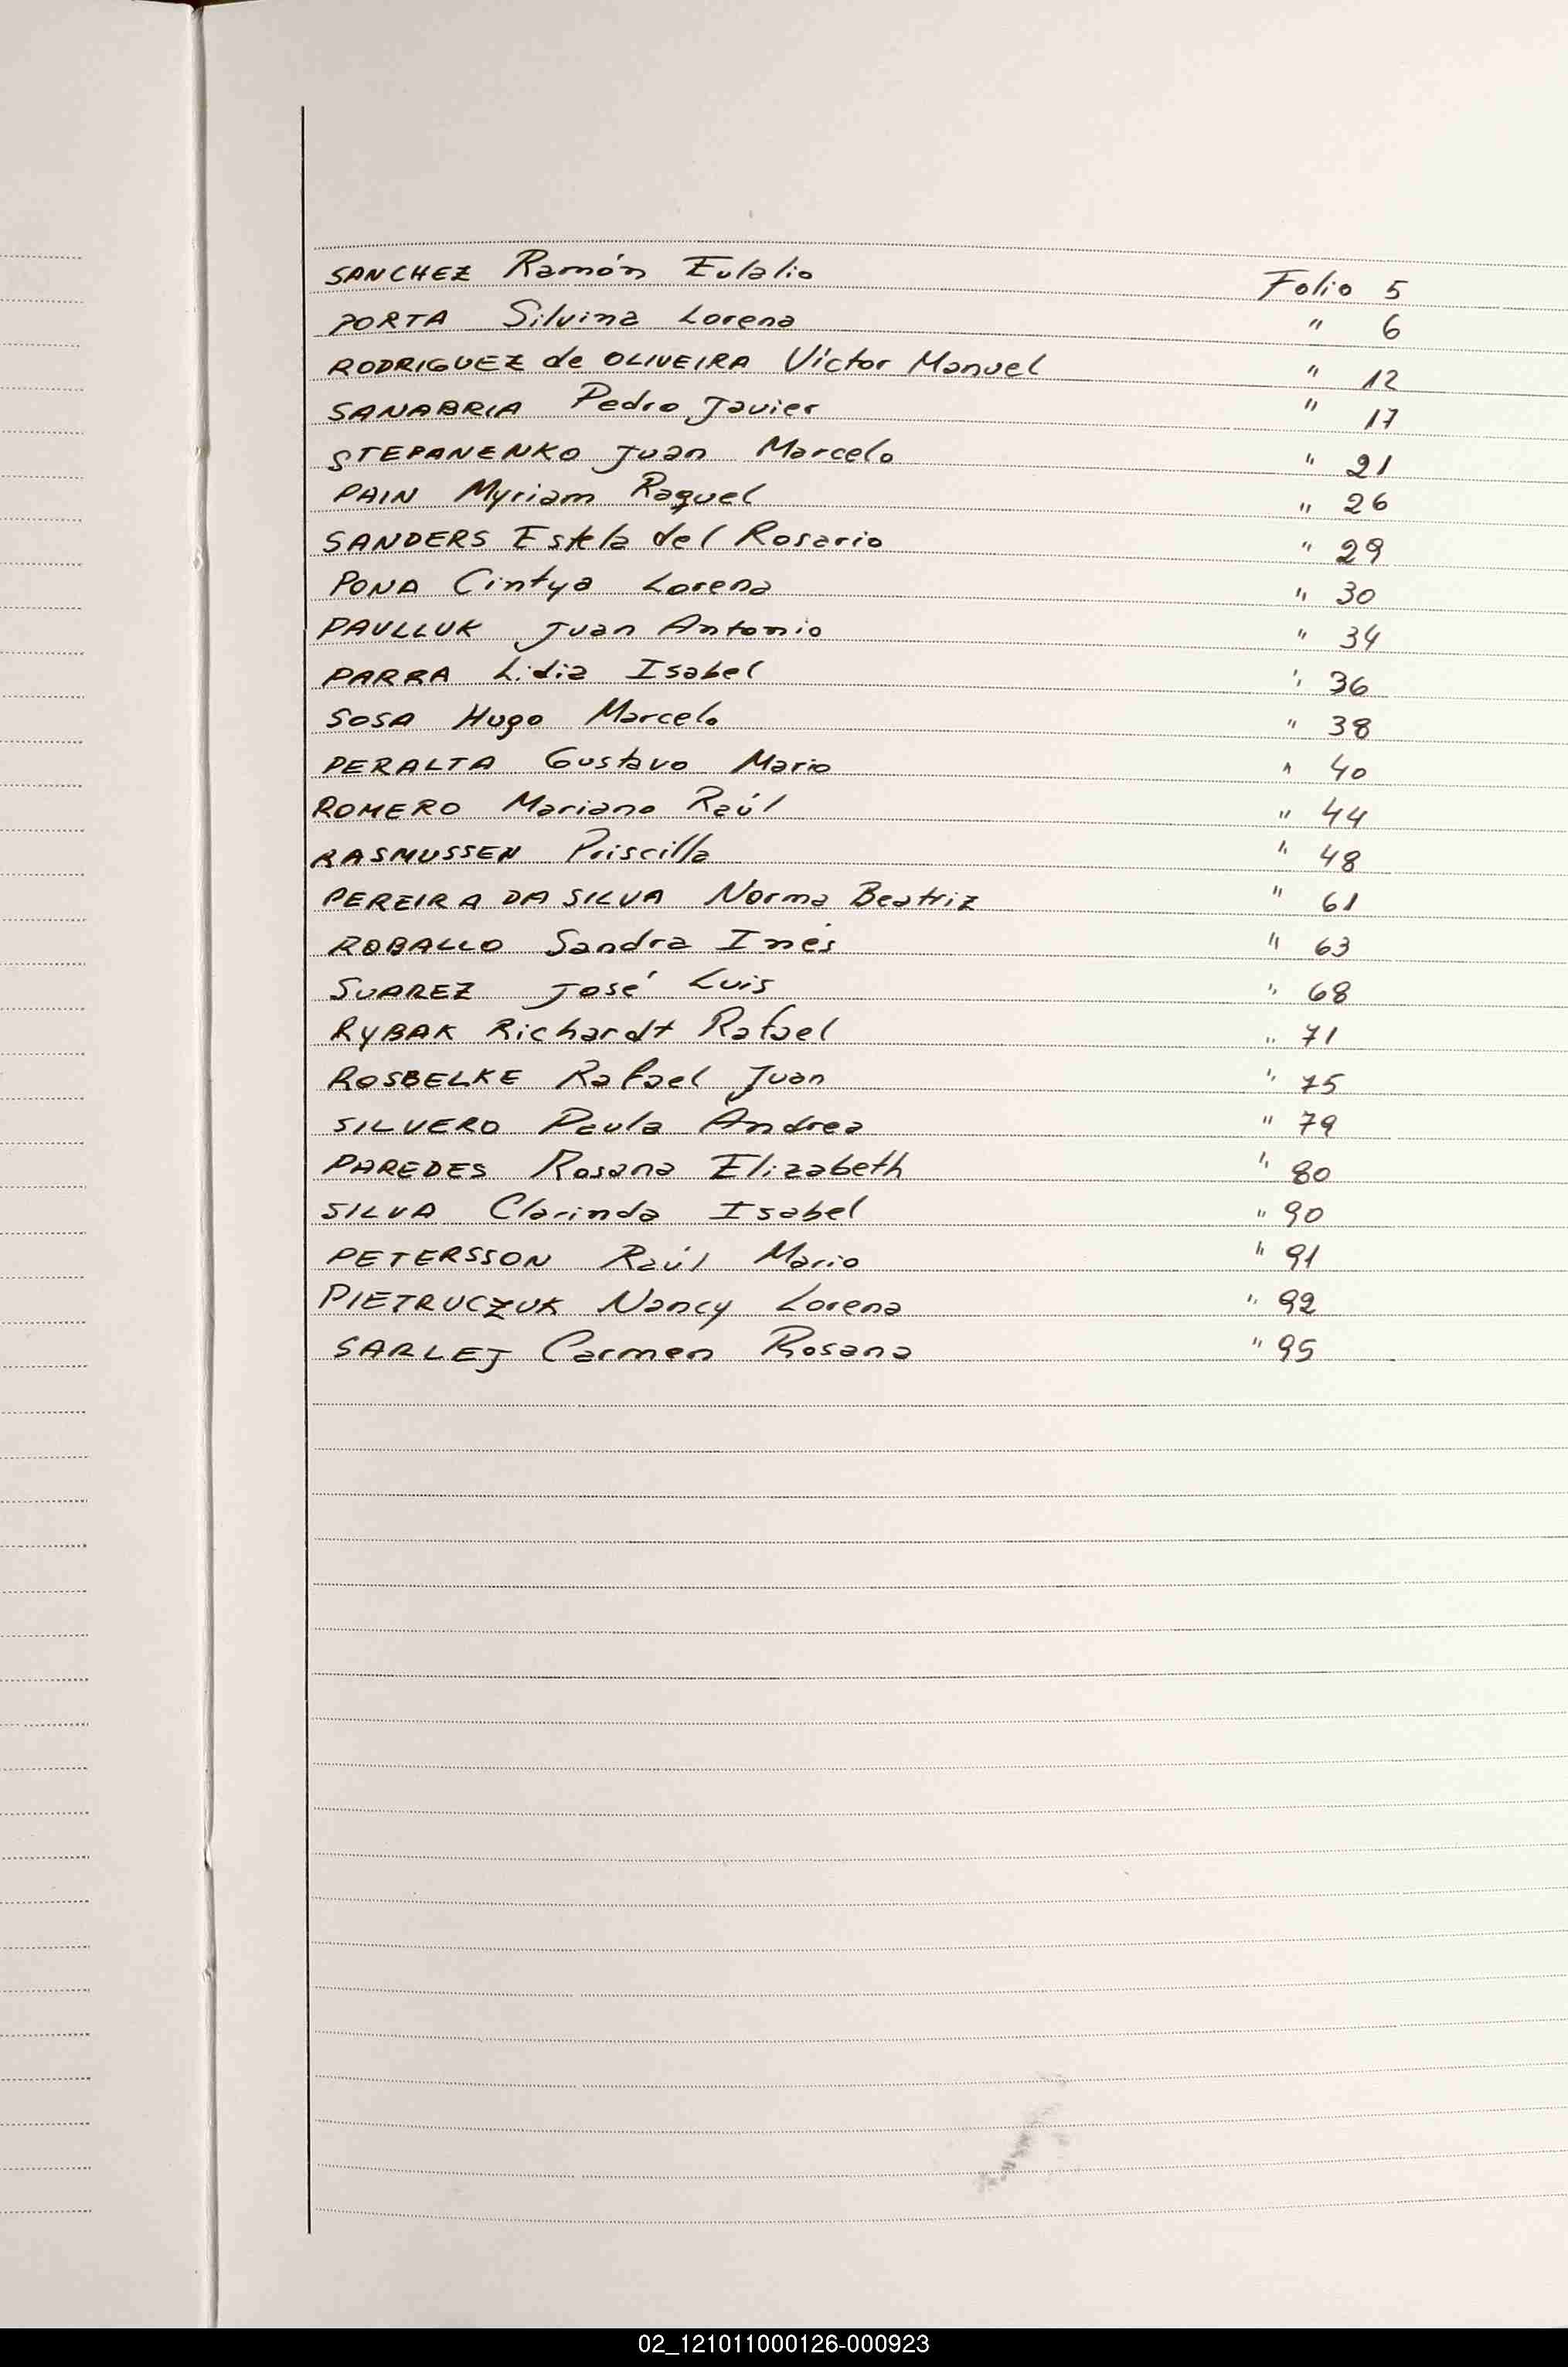 SANCHEZ Ramón Eulalio Folio 5
PORTA Silvina Lorena " 6
RODRIGUEZ de OLIVEIRA Víctor Manuel " 12
SANABRIA Pedro Javier " 17
STEPANENKO Juan Marcelo " 21
PAIN Myriam Raquel " 26
SANDERS Estela del Rosario " 29
PONA Cintya Lorena " 30
PAULLUK Juan Antonio " 34
PARRA Lidia Isabel " 36
SOSA Hugo Marcelo " 38
PERALTA Gustavo Mario " 40
ROMERO Mariano Raúl " 44
RASMUSSEN Priscilla " 48
PEREIRA DA SILVA Norma Beatriz " 61
ROBALLO Sandra Inés " 63
SUAREZ José Luis " 68
RYBAK Richardt Rafael " 71
ROSBELKE Rafael Juan " 75
SILVERO Paula Andrea " 79
PAREDES Rosana Elizabeth " 80
SILVA Clarinda Isabel " 90
PETERSSON Raúl Mario " 91
PIETRUCZUK Nancy Lorena " 92
SARLEJ Carmen Rosana " 95
02_121011000126-000923